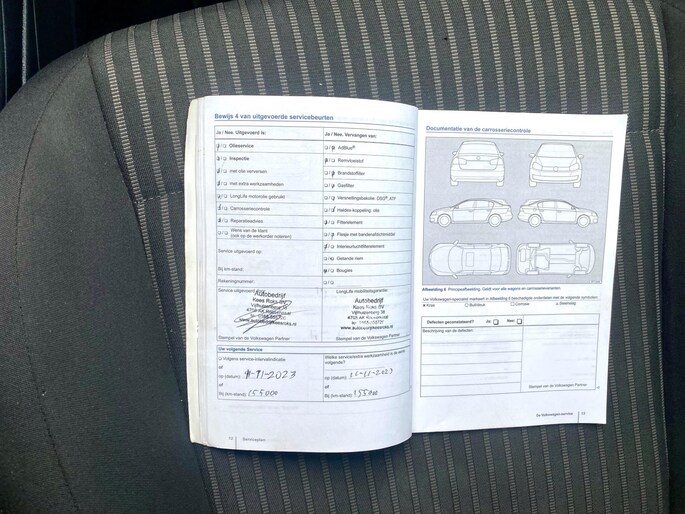 Bewijs 4 van uitgevoerde servicebeurten
Ja / Nee. Uitgevoerd is:
Olieservice
Inspectie
met olie verversen
met extra werkzaamheden
LongLife motorolie gebruikt
Carrosseriecontrole
Reparatieadvies
Wens van de klant
(ook op de werkorder noteren)
Service uitgevoerd op:
Bij km-stand:
Rekeningnummer:
Service uitgevoerd door:
Autobedrijf
Kees Roks BV
Stempel van de Volkswagen Partner
Ja / Nee. Vervangen van:
AdBlue®
Remvloeistof
Brandstoffilter
Gasfilter
Versnellingsbakolie: DSG®, ATF
Haldex-koppeling: olie
Filterelement
Flesje met bandenafdichtmiddel
Interieurluchtfilterelement
Getande riem
Bougies
LongLife mobiliteitsgarantie:
Autobedrijf
Kees Roks BV
www.autobedrijfkeesroks.nl
Stempel van de Volkswagen Partner
Uw volgende Service
Volgens service-intervalindicatie
of
op (datum): 11-11-2023
of
Bij (km-stand): 155000
Welke service/extra werkzaamheid is de
volgende?
op (datum): 11-11-2023
of
Bij (km-stand): 155000
12
Serviceplan
Documentatie van de carrosseriecontrole
Afbeelding 6 Principeafbeelding: Geldt voor alle wagens en carrosserievarianten.
Uw Volkswagen-specialist markeert in Afbeelding 6 beschadigde onderdelen met de volgende symbolen:
Kras
Buil/deuk
Corrosie
Steenslag
Defecten geconstateerd? Ja: Nee:
Beschrijving van de defecten:
Stempel van de Volkswagen Partner
De Volkswagen-service
13